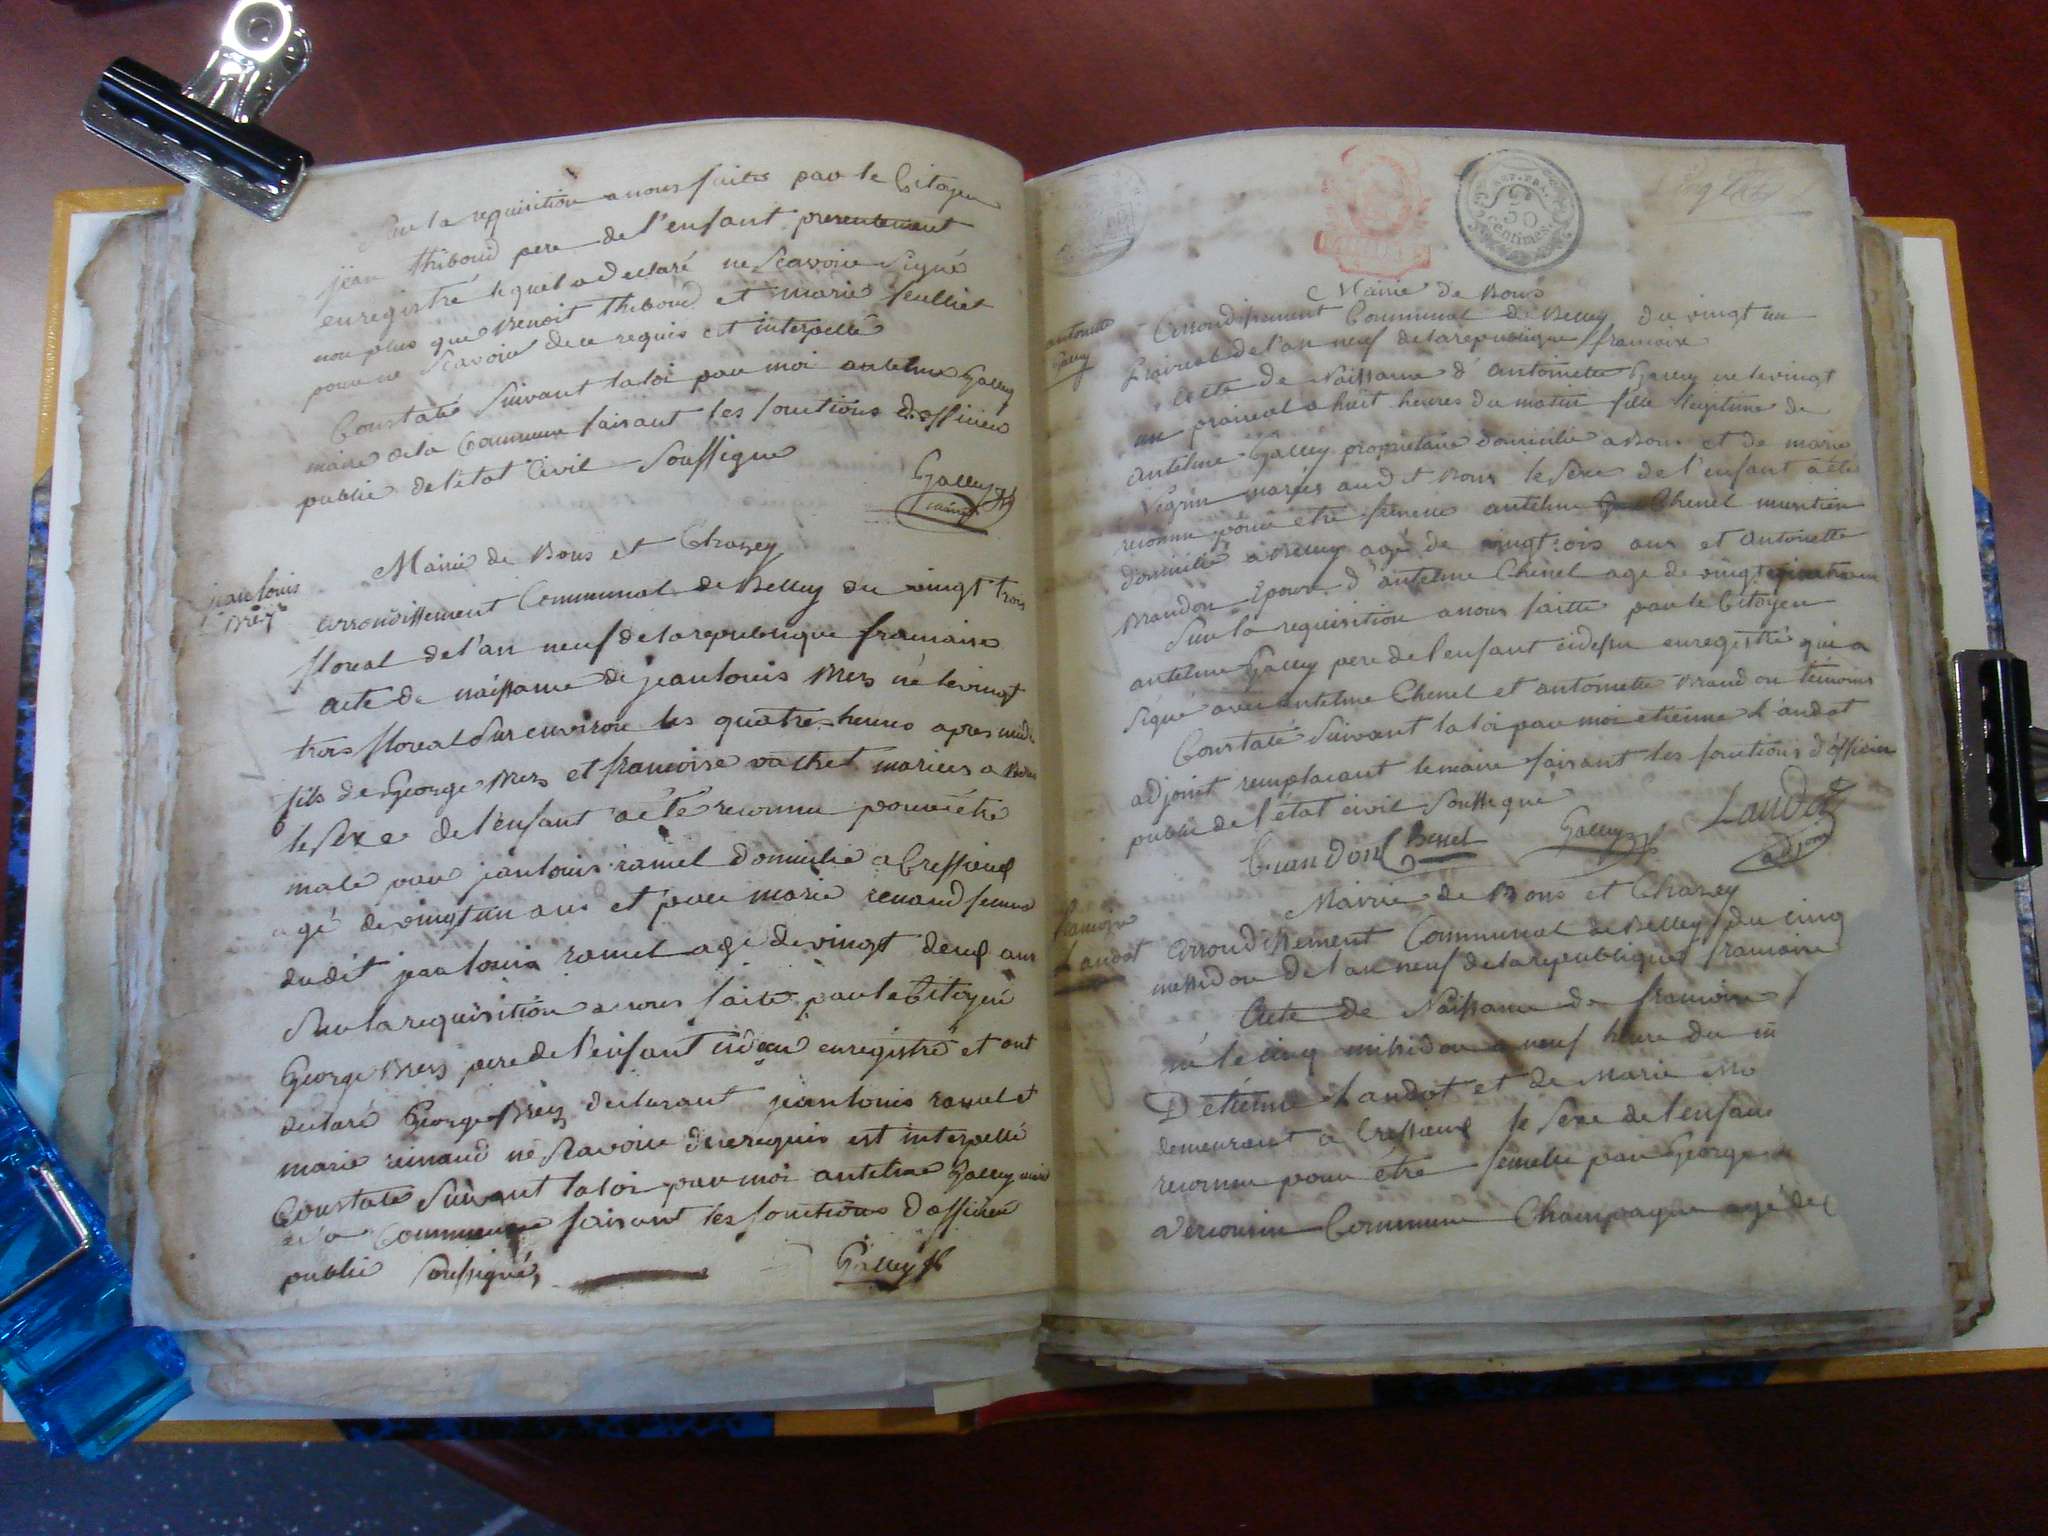 Sur la requisition a nous faite par le Citoyen
jean thiboud pere de l'enfant presentement
enregistré lequel a declaré ne Scavoir Signé
non plus que Benoit thiboud et marie
pour ne Scavoir de ce requis et interpellé
Constaté Suivant la loi par moi antelme Galley
maire de la Commune faisant les fonctions d'officier
public de l'état Civil Soussigne
Galley
maire
jean louis
Brey
Mairie de Bons et Chazey
arrondissement Communal de Belley du vingt trois
floreal de l'an neuf de la republique francaise
acte de naissance de jean louis Bres né le vingt
trois floreal Sur environ les quatre heures apres midi
fils de George Bres et francoise vachet mariers a Bons
le Sexe de l'enfant a été reconnu pour être
male par jean louis ramel domicilie a Cressieu
agé de vingt un ans et par marie renaud femme
dudit jean louis ramel agé de vingt deux ans
Sur la requisition a nous faite par le Citoyen
George Bres pere de l'enfant enregistré et ont
declaré George Brey declarant jean louis ramel et
marie reinaud ne Scavoir de ce requis est interpellé
Constaté Suivant la loi par moi antelme Galley maire
de la Commune faisant les fonctions d'officier
public Soussigné,
Galley
50
Centimes
Mairie de Bons
antoinette
Galley
Arrondissement Communal de Belley du vingt un
Prairial de l'an neuf de la republique francaise
acte de Naissance d'antoinette Galley ne le vingt
un prairial a huit heures du matin fille legitime de
antelme Galley propriétaire domicilie a Bons et de marie
Vegrin mariés audit Bons le Sexe de l'enfant a été
reconnu pour etre femelle antelme Chenel
domicilié a Belley agé de ans et antoinette
Brandon Epouse d'antelme Chenel age de
Sur la requisition a nous faitte par le Citoyen
antelme Galley pere de l'enfant cidessu enregistré qui a
Signé avec antelme Chenel et antoinette Brandon témoins
Constaté Suivant la loi par moi etienne Landot
adjoint remplacant le maire faisant les fonctions d'officier
public de l'état civil Soussigné
Brandon Chenel Galley Landot
adjoint
Mairie de Bons et Chazey
francoise
Landot
arrondissement Communal de Belley du cinq
messidor de l'an neuf de la republique francaise
Acte de Naissance de francoise
né le cinq messidor a neuf heure du m
D'étienne Landot et de Marie Mo
demeurant a Cressieu le Sexe de l'enfan
reconnu pour être femelle par George
Commune Champagne agé de